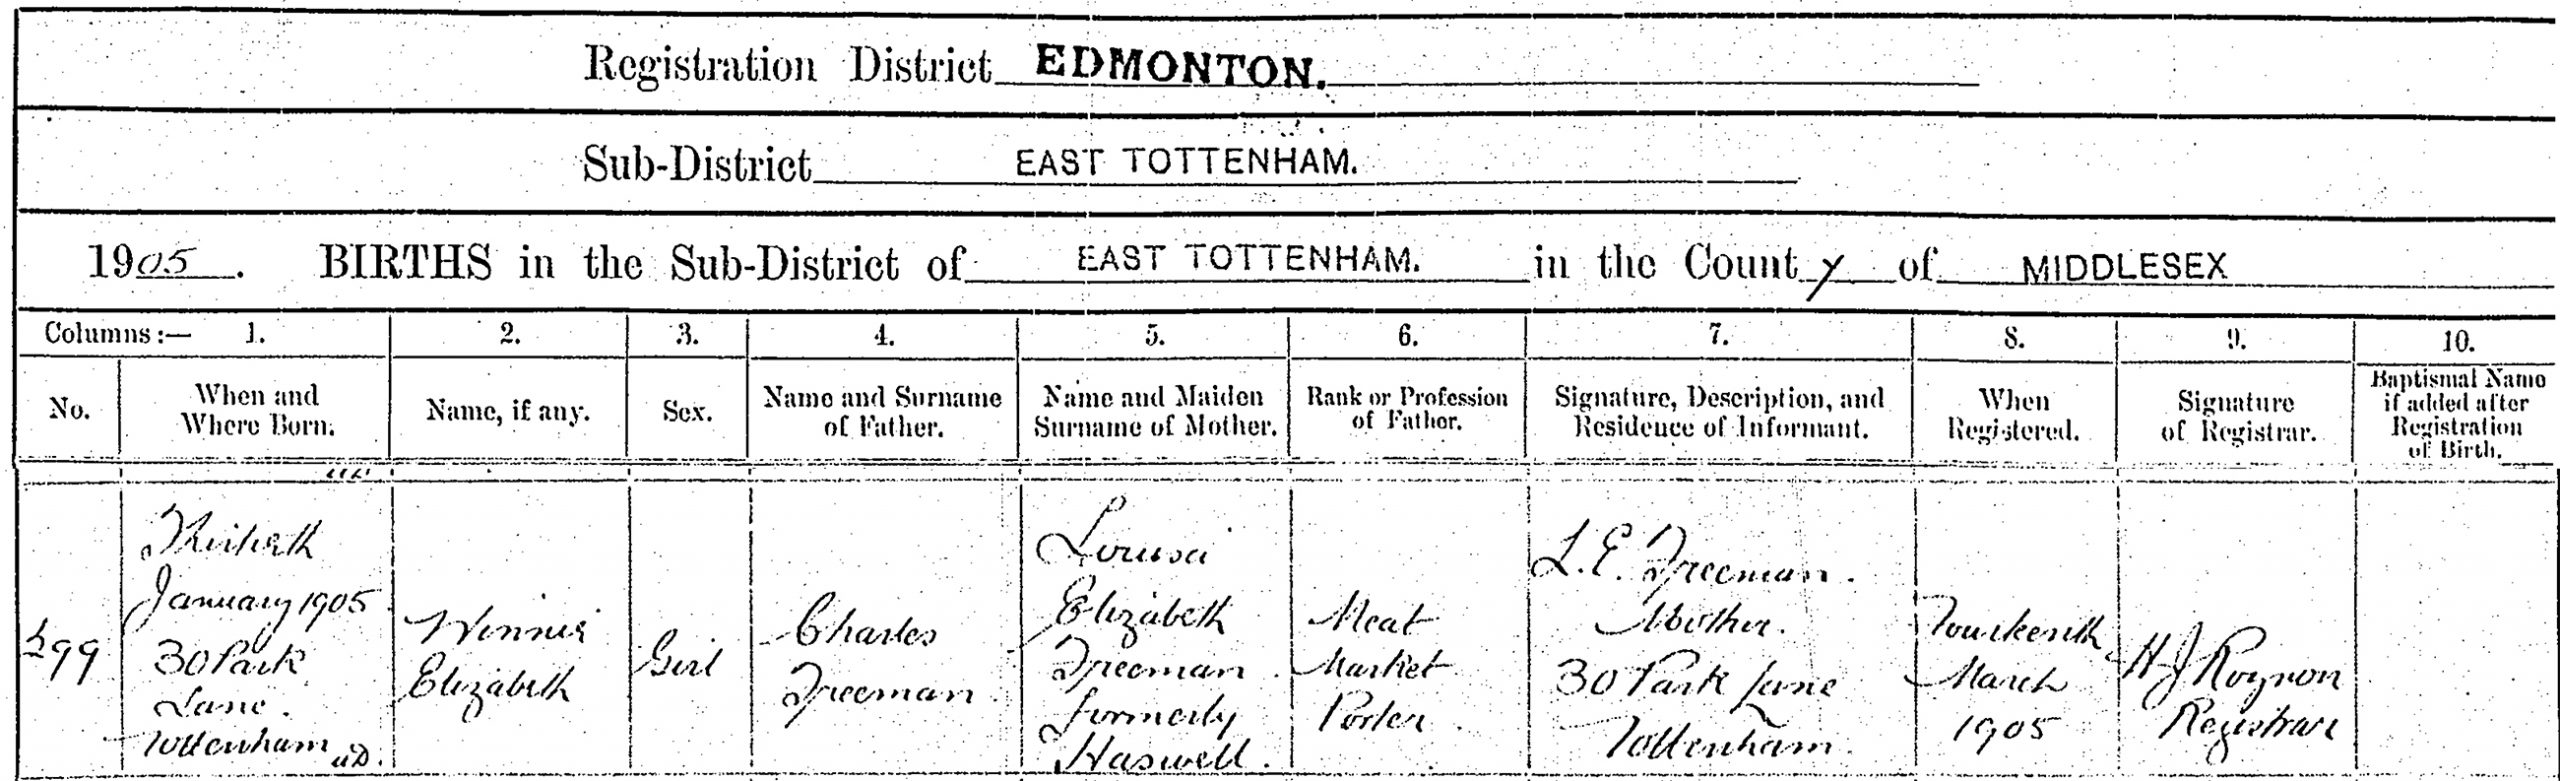 Registration District EDMONTON.
Sub-District EAST TOTTENHAM.
1905. BIRTHS in the Sub-District of EAST TOTTENHAM. in the County of MIDDLESEX
Columns:— 1. 2. 3. 4. 5. 6. 7. 8. 9. 10.
No.
When and
Where Born.
Name, if any.
Sex.
Name and Surname
of Father.
Name and Maiden
Surname of Mother.
Rank or Profession
of Father.
Signature, Description, and
Residence of Informant.
When
Registered.
Signature
of Registrar.
Baptismal Name
if added after
Registration
of Birth.
299
Thirtieth
January 1905
30 Park
Lane.
Tottenham UD.
Winnie
Elizabeth
Girl
Charles
Freeman
Louisa
Elizabeth
Freeman
formerly
Haswell.
Meat
Market
Porter
L.E. Freeman.
Mother.
30 Park Lane
Tottenham
Fourteenth
March
1905
H J Roynon
Registrar